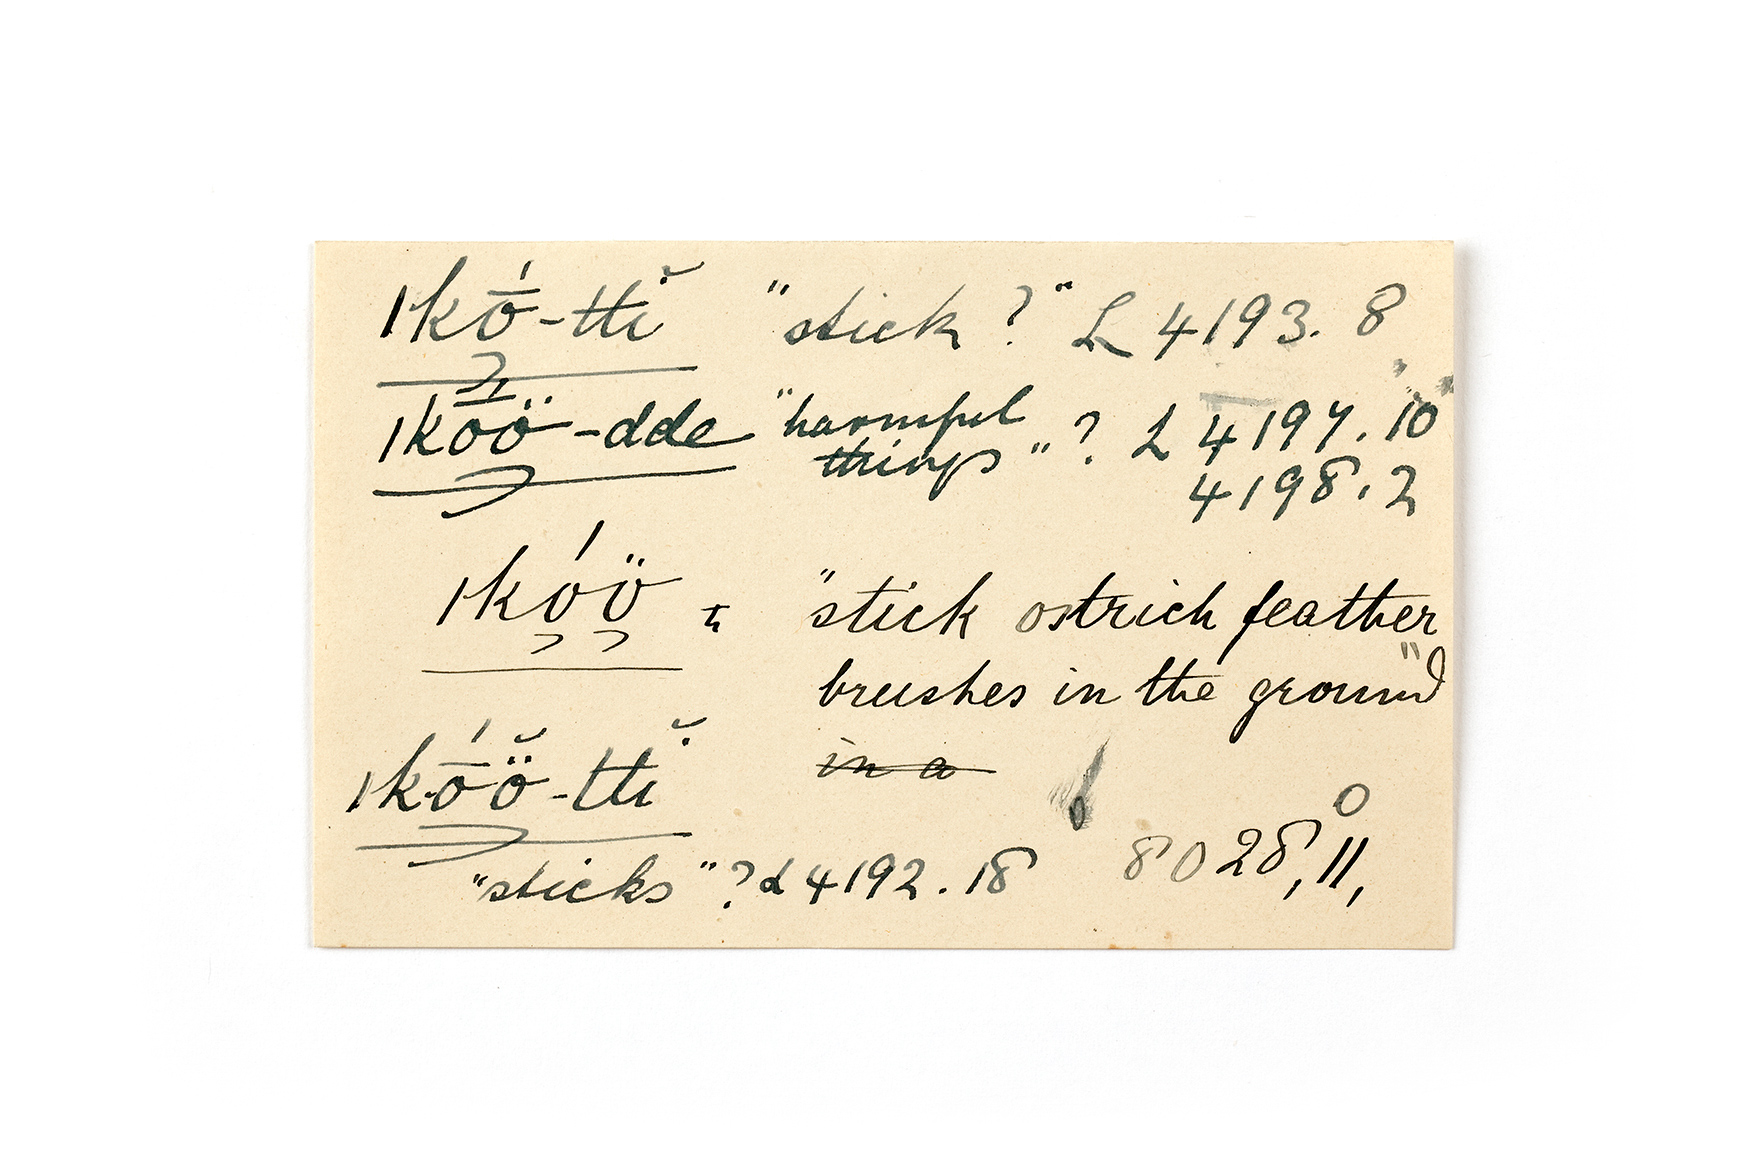 ǀkṓ-ttĭ "stick?" L 4193. 8
ǀkō̈ö-dde "harmful things"? L 4197. 10
4198. 2
ǀkóö = "stick ostrich feather
brushes in the ground"
in a
ǀkṓö̆-ttĭ
8028, 11,
"sticks"? L 4192. 18